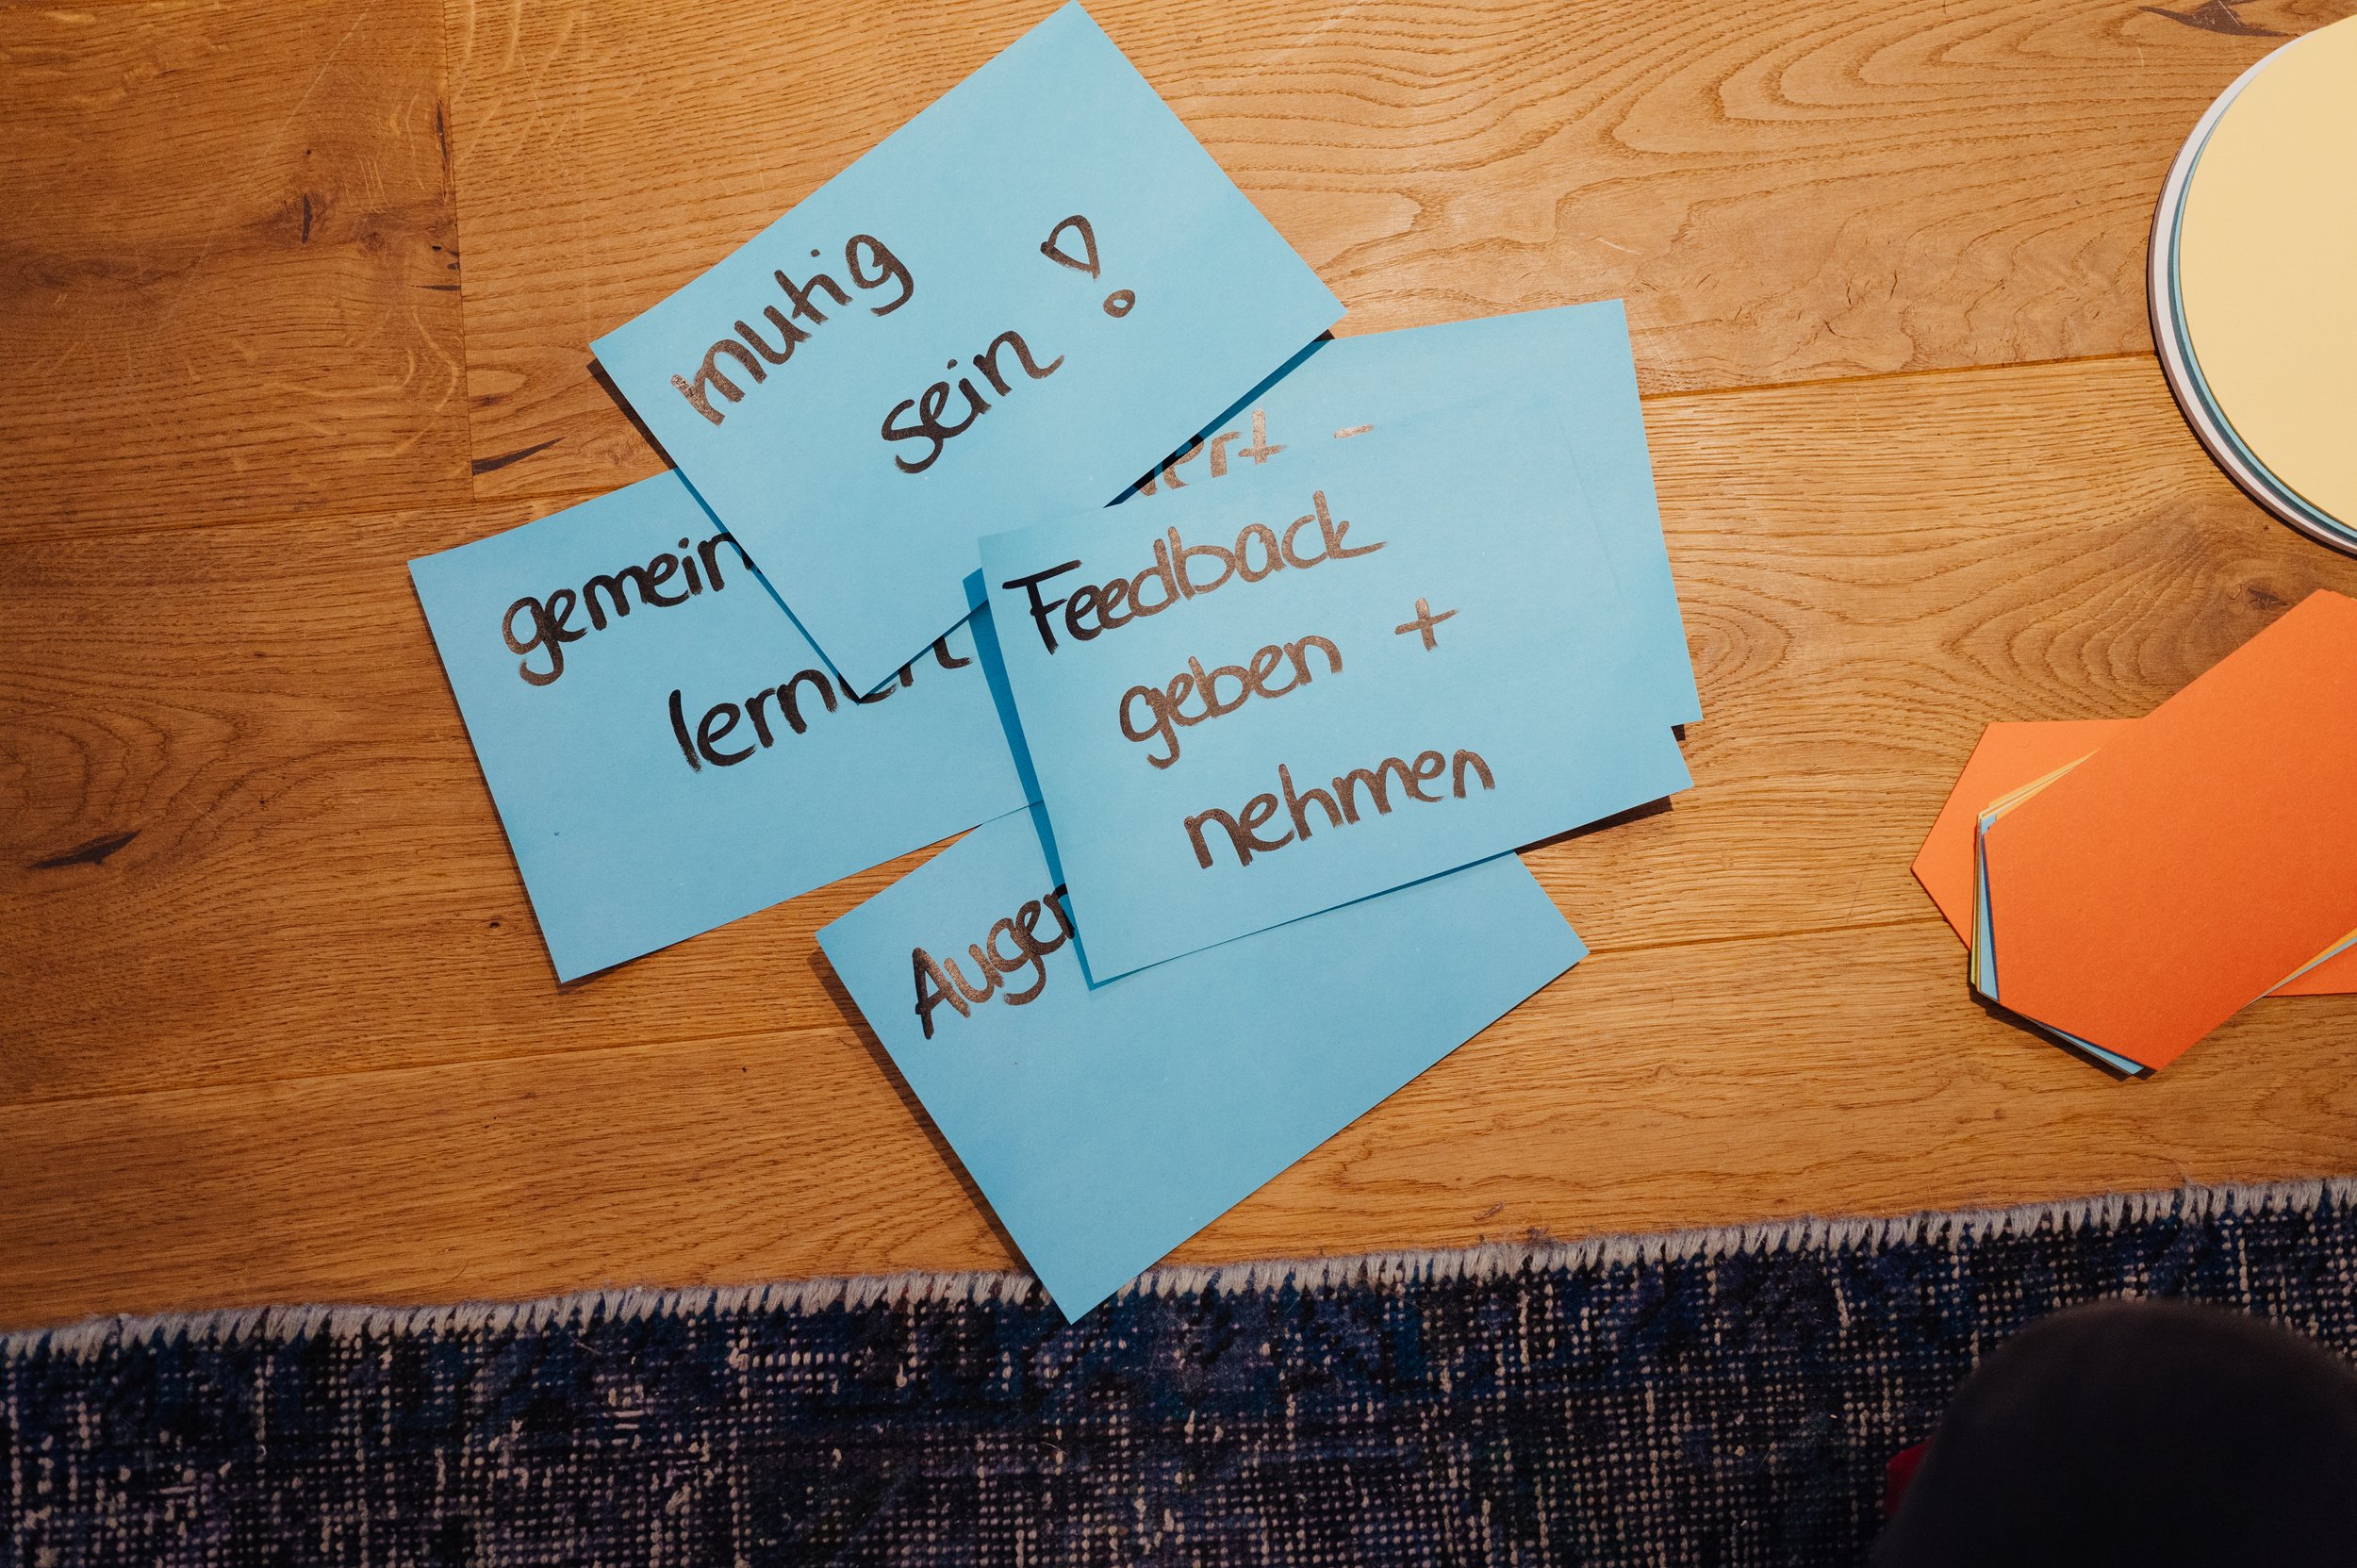 mutig
sein!
gemein
lernen
Feedback
geben +
nehmen